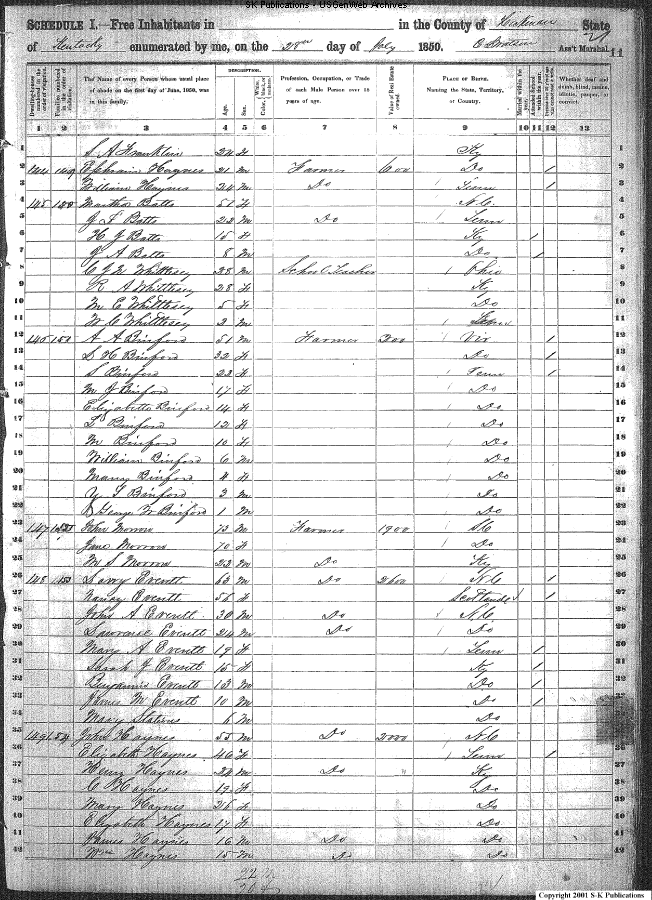 SK Publications - USGenWeb Archives
SCHEDULE I.—Free Inhabitants in in the County of State
of Kentucky enumerated by me, on the 28th day of July 1850. Ass't Marshal. 11
Dwelling-houses numbered in the order of visitation.
Families numbered in the order of visitation.
The Name of every Person whose usual place of abode on the first day of June, 1850, was in this family.
DESCRIPTION.
Age.
Sex.
Color, White, black, or mulatto.
Profession, Occupation, or Trade of each Male Person over 15 years of age.
Value of Real Estate owned.
PLACE OF BIRTH. Naming the State, Territory, or Country.
Married within the year.
Attended School within the year.
Whether deaf and dumb, blind, insane, idiotic, pauper, or convict.
1 2 3 4 5 6 7 8 9 10 11 12 13
1 S. A Franklin 24 f Ky 1
2 144 149 Ephraim Haynes 21 m Farmer 600 Do 1 2
3 William Haynes 24 m Do Tenn 1 3
4 145 150 Martha Batts 51 f N.C. 4
5 J F Batts 22 m Do Tenn 5
6 H J Batts 15 f Ky 1 6
7 J A Batts 8 m Do 1 7
8 Whittesey 28 m School Teacher Ohio 8
9 R A Whittesey 28 f Ky 9
10 M E Whittesey 5 f Do 10
11 W C Whittesey 2 m Tenn 11
12 146 151 A A Binford 51 m Farmer 300 Vir 1 12
13 S H Binford 32 f Do 1 13
14 S Binford 22 f Tenn 1 14
15 M J Binford 17 f Do 15
16 Elizabeth Binford 14 f Do 16
17 L Binford 12 f Do 17
18 M Binford 10 f Do 18
19 William Binford 6 m Do 19
20 Mary Binford 4 f Do 20
21 Y T Binford 3 m Do 21
22 George W Binford 1 m Do 22
23 147 152 John Morrow 73 m Farmer 1900 SC 23
24 Jane Morrow 70 f Do 24
25 M S Morrow 22 m Do Ky 25
26 148 153 Everett 63 m Do 2600 N.C 1 26
27 Nancy Everett 56 f Scotland 1 27
28 John A Everett 30 m Do N.C 28
29 Lawrence Everett 24 m Do Do 29
30 Mary A Everett 19 f Tenn 1 30
31 Sarah J Everett 15 f Ky 1 31
32 Benjamin Everett 13 m Do 1 32
33 James M Everett 10 m Do 1 33
34 Mary 6 m Do 34
35 149 154 John Haynes 55 m Do 2000 N.C 35
36 Elizabeth Haynes 46 f Tenn 1 36
37 Henry Haynes 24 m Do " Ky 37
38 C Haynes 19 f Do 38
39 Mary Haynes 26 f Do 39
40 Elizabeth Haynes 17 f Do 40
41 James Haynes 16 m Do Do 41
42 Wm Haynes 15 m Do Do 42
Copyright 2001 S-K Publications